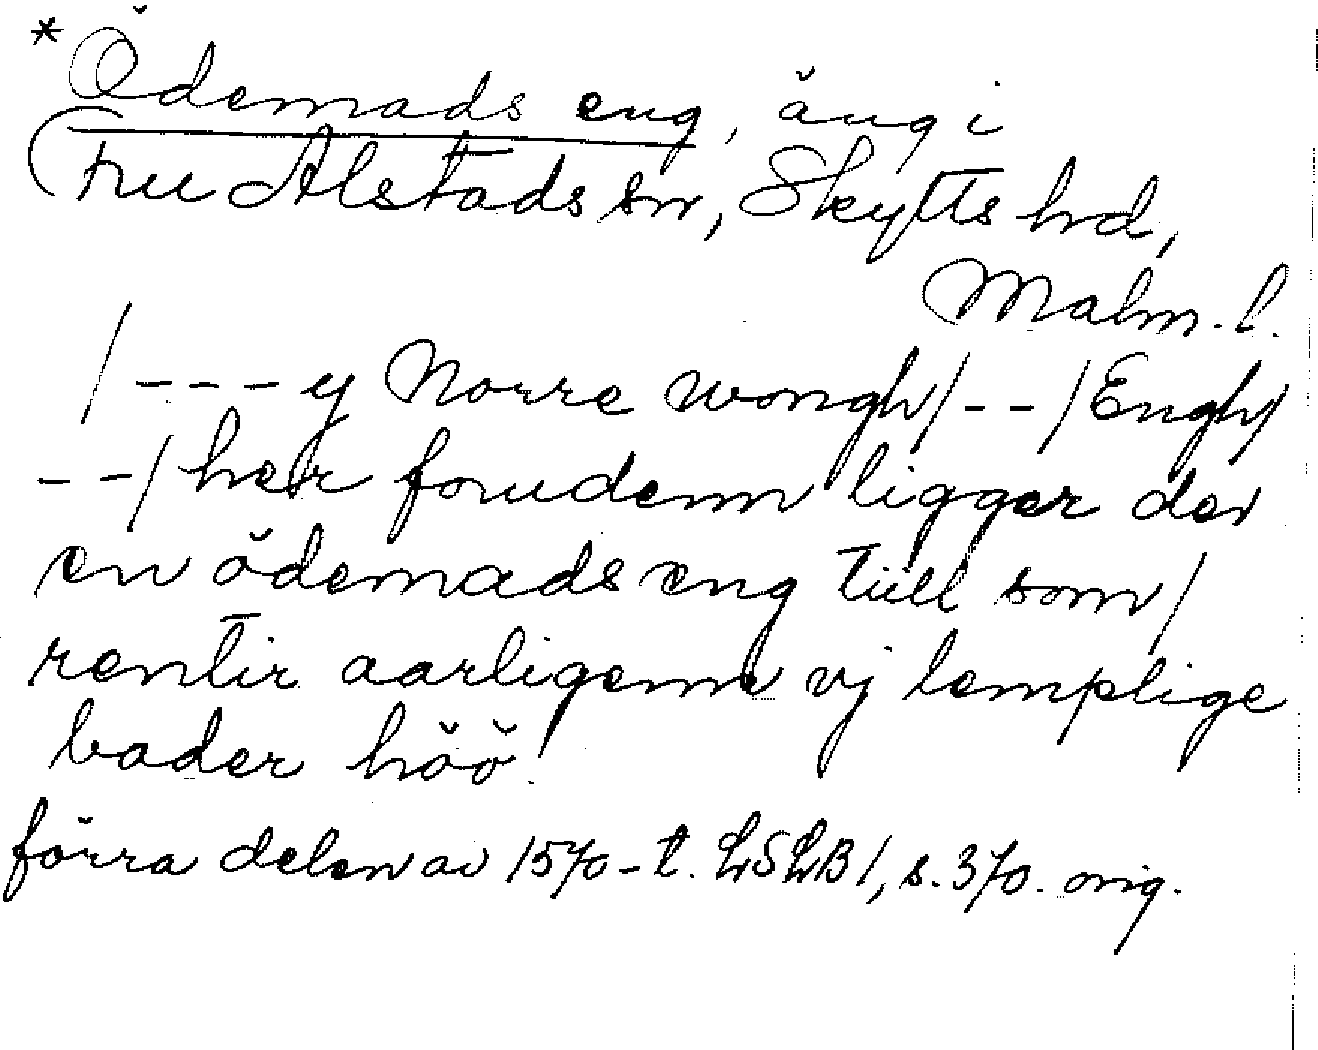 * Ödemads eng, äng i
(nu Alstads sn, Skytts hd,
Malm. l.
/ - - - y Norre wongh / - - / Engh /
- - / her foruden ligger der
en ödemads eng tiill som /
rentir aarligenn vj lemplige
bader höö.
förra delen av 1570-t. LSLB 1, s. 370. orig.